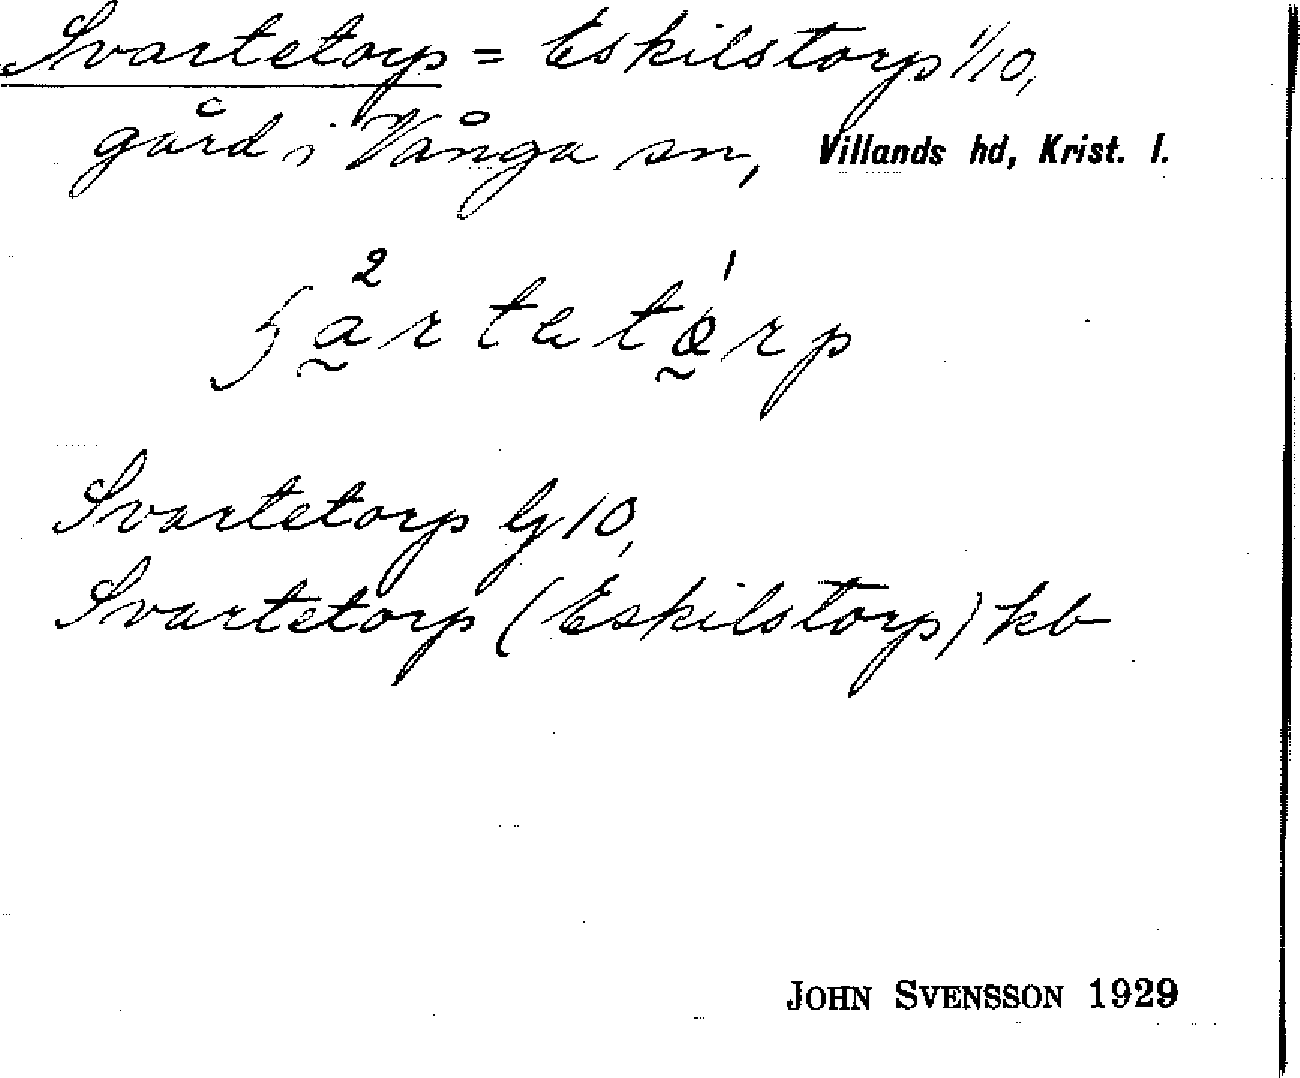 Svartetorp = Eskilstorp 1/10,
gård i Vånga sn, Villands hd, Krist. l.
Svartetorp Gj 10,
Svartetorp (Eskilstorp) kb
JOHN SVENSSON 1929